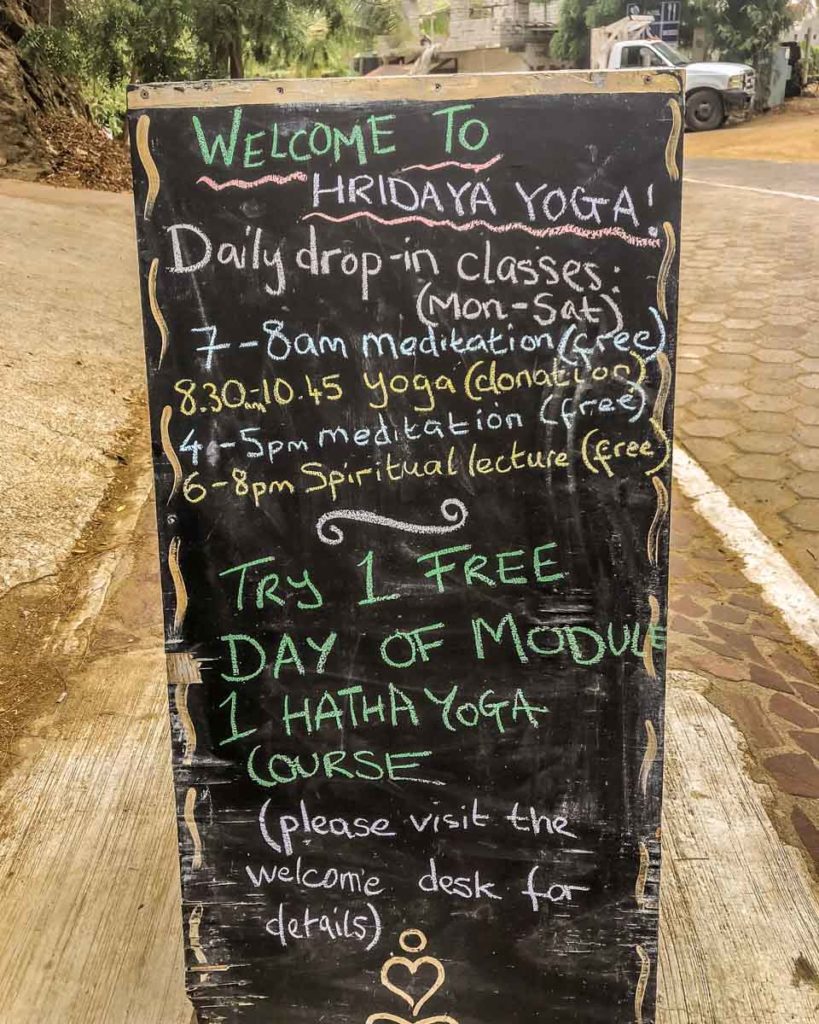 WELCOME TO
HRIDAYA YOGA!
Daily drop-in classes:
(Mon-Sat)
7-8am meditation (free)
8.30am-10.45 yoga (donation)
4-5pm meditation (free)
6-8pm Spiritual lecture (free)
TRY 1 FREE
DAY OF MODULE
1 HATHA YOGA
COURSE
(please visit the
welcome desk for
details)